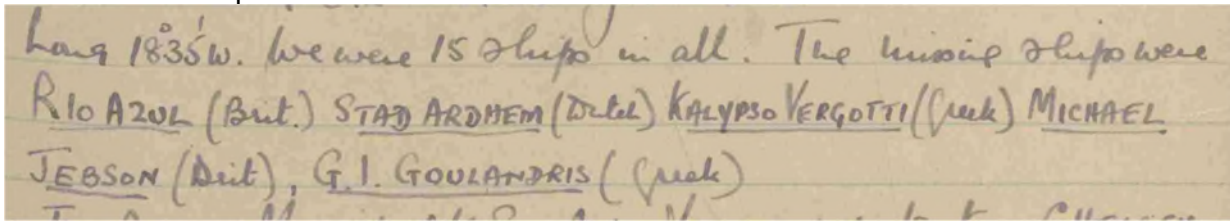 Long 18°35'W. We were 15 ships in all. The missing ships were
RIO AZUL (Brit.) STAD ARDHEM (Dutch) KALYPSO VERGOTTI (Greek) MICHAEL
JEBSON (Brit), G.I. GOULANDRIS (Greek)